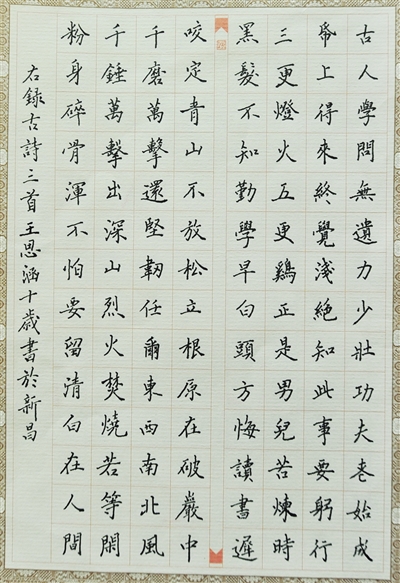 古人學問無遺力少壯功夫老始成
帋上得來終覺淺絕知此事要躬行
三更燈火五更鷄正是男兒苦煉時
黑髮不知勤學早白頭方悔讀書遲
咬定青山不放松立根原在破巖中
千磨萬擊還堅韌任爾東西南北風
千錘萬擊出深山烈火焚燒若等閑
粉身碎骨渾不怕要留清白在人間
右錄古詩三首王思涵十歲書於新昌